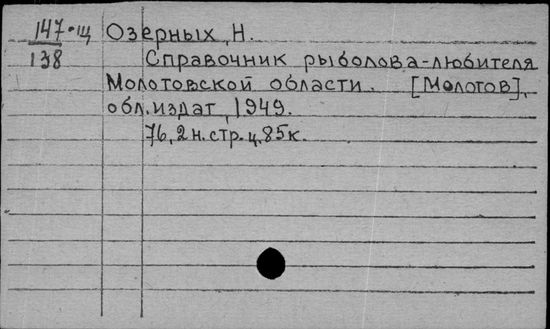 147-щ
138
Озерных, Н.
Справочник рыболова-любителя
Молотовской области. [Молотов],
обл.издат, 1949.
76,2 н.стр. ц.85к.